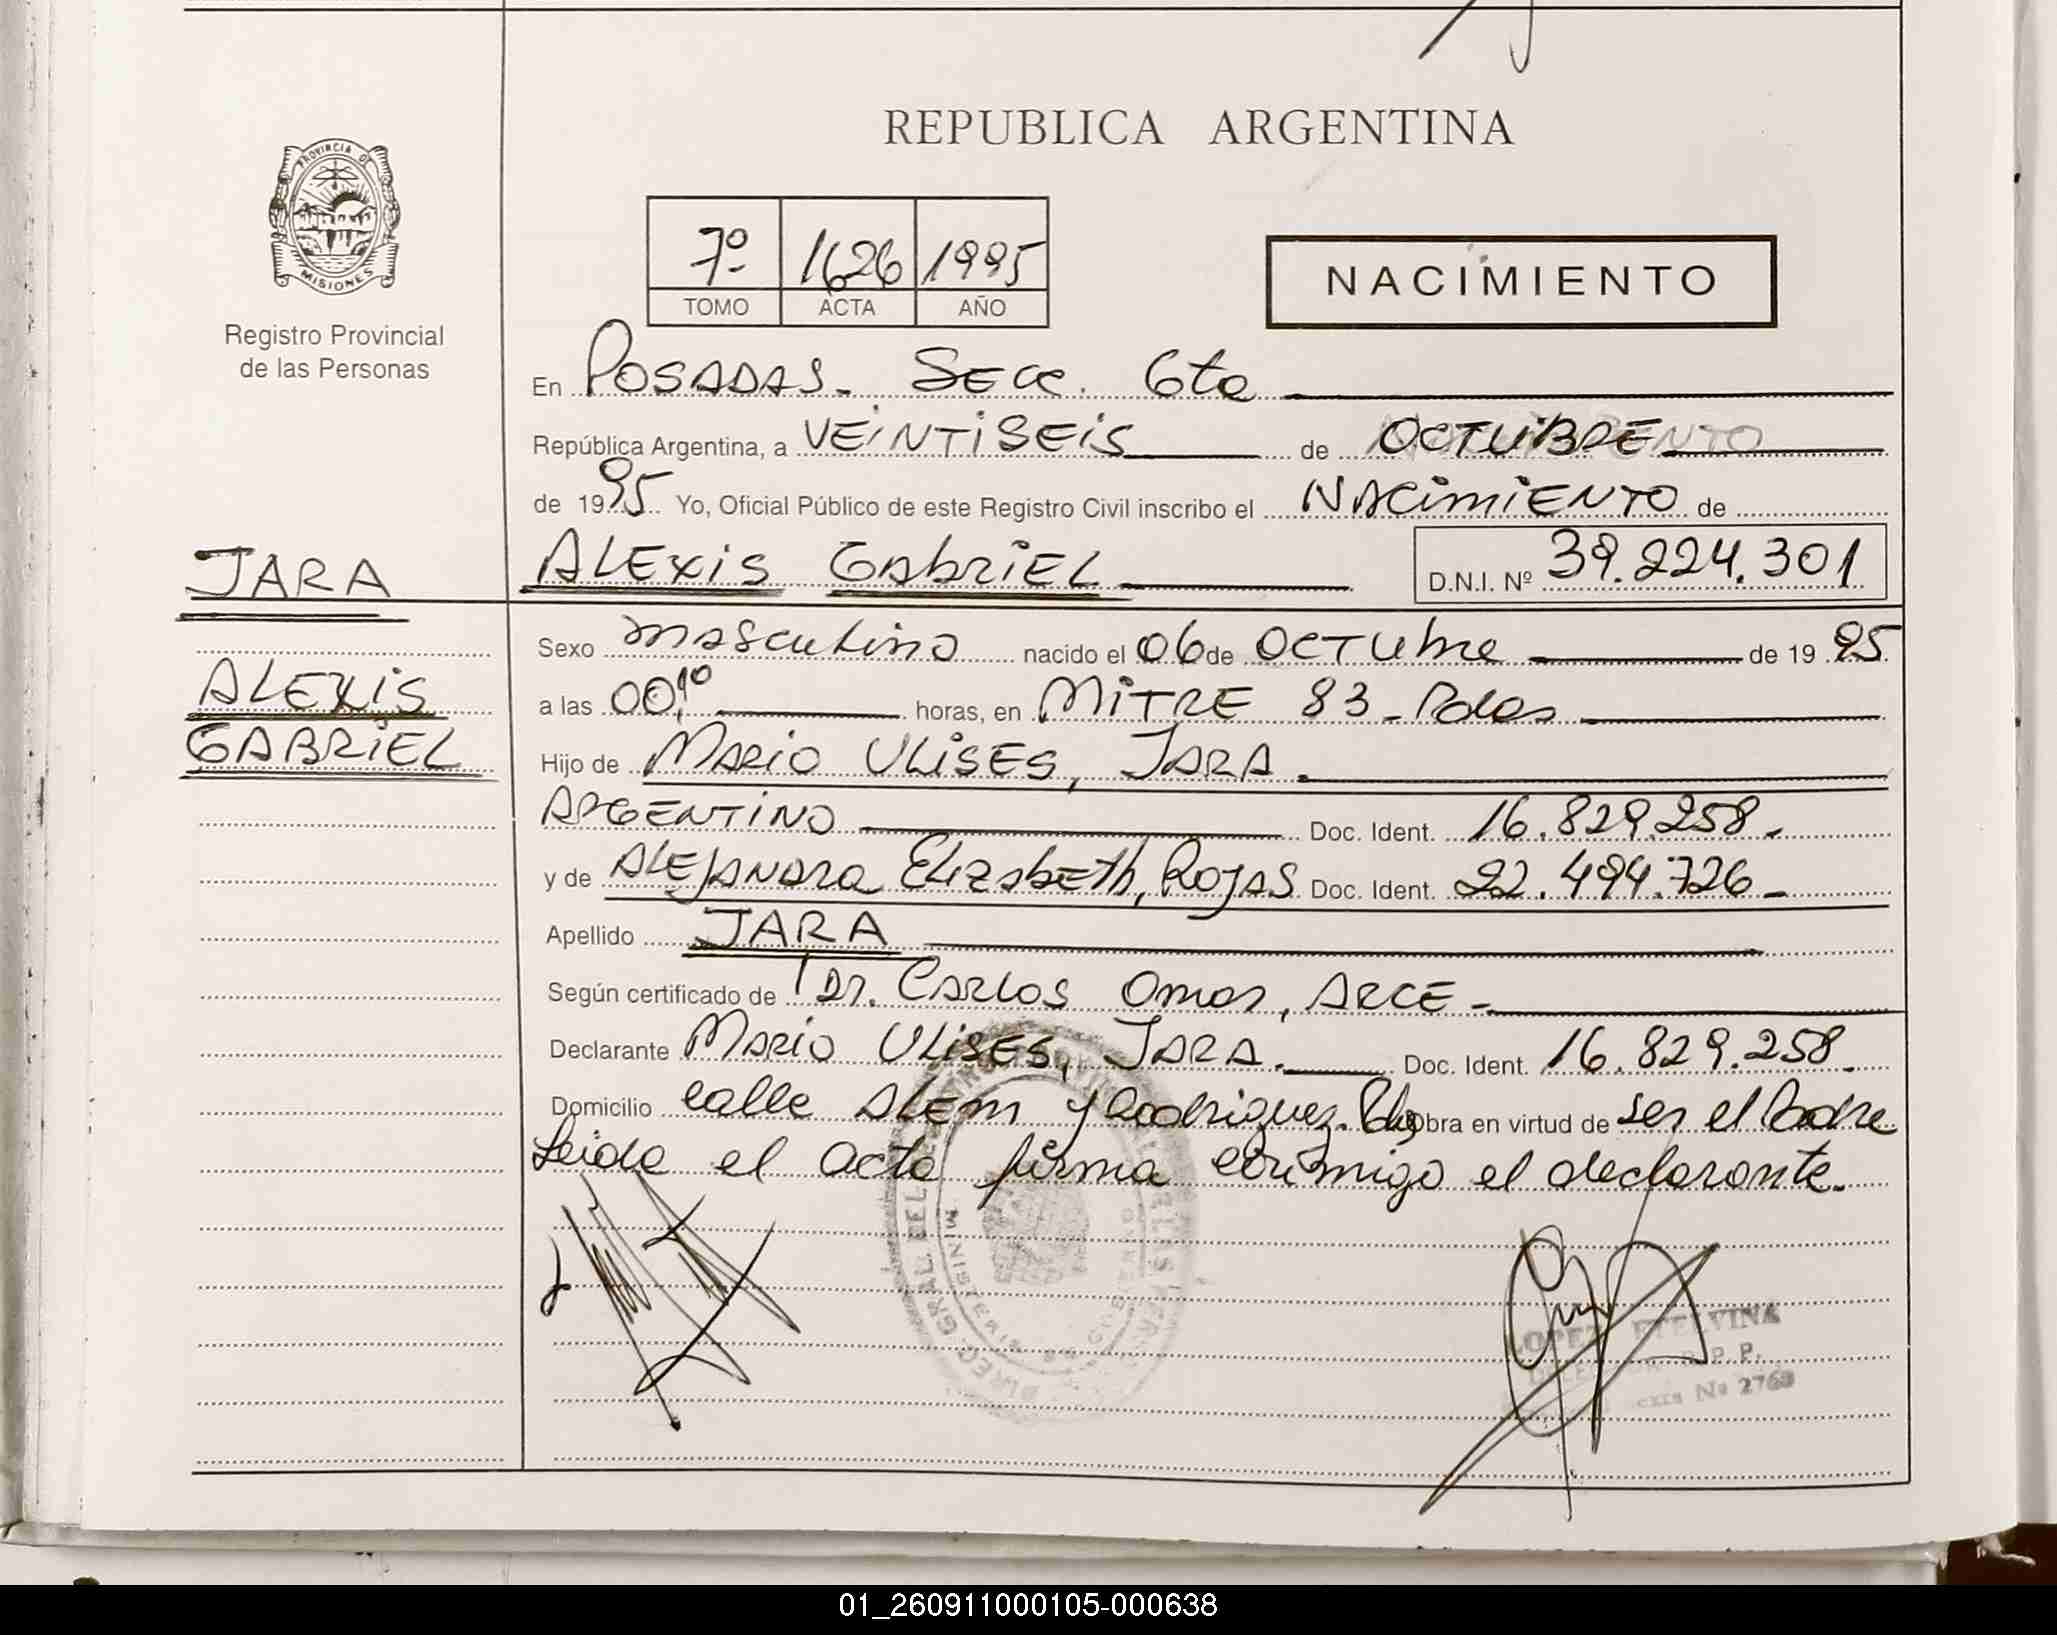 REPUBLICA ARGENTINA
PROVINCIA DE
MISIONES
Registro Provincial
de las Personas
7º 1626 1995
TOMO ACTA AÑO
NACIMIENTO
En POSADAS. SECC. 6ta
República Argentina, a VEINTISEIS de OCTUBRE
de 1995 Yo, Oficial Público de este Registro Civil inscribo el NACIMIENTO de
JARA
ALEXIS GABRIEL D.N.I. Nº 39.224.301
Sexo masculino nacido el 06 de OCTUbre de 1995
ALEXIS
a las 00,10 horas, en MITRE 83 - Pdas
GABRIEL
Hijo de MARIO ULISES, JARA.
ARGENTINO Doc. Ident. 16.829.258.
y de ALEJANDRA ElizabETh, ROJAS Doc. Ident. 22.494.726
Apellido JARA
Según certificado de Dr. CARLOS Omar, ARCE -
Declarante MARIO ULISES, JARA. Doc. Ident. 16.829.258
Domicilio calle ALEM y Rodriguez. Pdas Obra en virtud de ser el Padre
Leida el acta firma conmigo el declarante.
LOPEZ ETELVINA
R.P.P.
Nº 2763
01_260911000105-000638